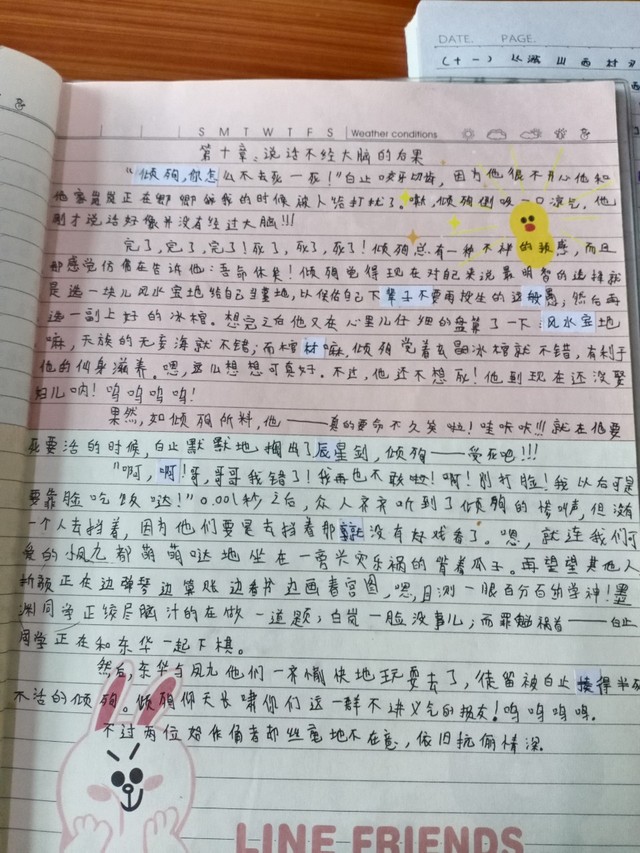 DATE. PAGE.
(十一) 从 山西村
S M T W T F S Weather conditions
第十章:说话不经大脑的后果
"倾殉,你怎么不去死一死!"白止咬牙切齿,因为他很不开心他和
他家岚岚正在卿卿我我的时候被人给打扰了。嗽,倾殉倒吸一口凉气,他
刚才说话好像并没有经过大脑!!!
完了,完了,完了!死了,死了,死了!倾殉总有一种不祥的预感,而且
那感觉仿佛在告诉他:吾命休矣!倾殉觉得现在对自己来说最明智的选择就
是选一块儿风水宝地给自己当墓地,以保佑自己下辈子不要再投生的这么,然后再
选一副上好的冰棺。想完之后他又在心里儿仔细的盘算了一下,风水宝地
嘛,天族的无妄海就不错;而棺材嘛,倾殉觉着玄晶冰棺就不错,有利于
他的仙身滋养,嗯,这么想想可真好。不过,他还不想死!他到现在还没娶
妇儿呐!呜呜呜呜!
果然,如倾殉所料,他——真的要命不久矣啦!哇咔咔!!!就在他要
死要活的时候,白止默默地掏出了辰星剑,倾殉——受死吧!!!
"啊,啊!哥,哥哥我错了!我再也不敢啦!啊!别打脸!我以后可是
要靠脸吃饭哒!"0.001秒之后,众人齐齐听到了倾殉的惨叫声,但没有
一个人去挡着,因为他们要是去挡着那就没有好戏看了。嗯,就连我们可
爱的小凤九都萌萌哒地坐在一旁兴灾乐祸的背着瓜子。再望望其他人
折颜正在边弹琴边算账边看书边画春宫图,嗯,目测一眼百分百的学神!墨
渊同学正绞尽脑汁的在做一道题;白岚一脸没事儿;而罪魁祸首——白止
同学正在和东华一起下棋。
然后,东华与凤九他们一齐愉快地玩耍去了,徒留被白止揍得半死
不活的倾殉。倾殉仰天长啸你们这一群不讲义气的损友!呜呜呜呜。
不过两位始作俑者却丝毫地不在意,依旧伉俪情深。
LINE FRIENDS